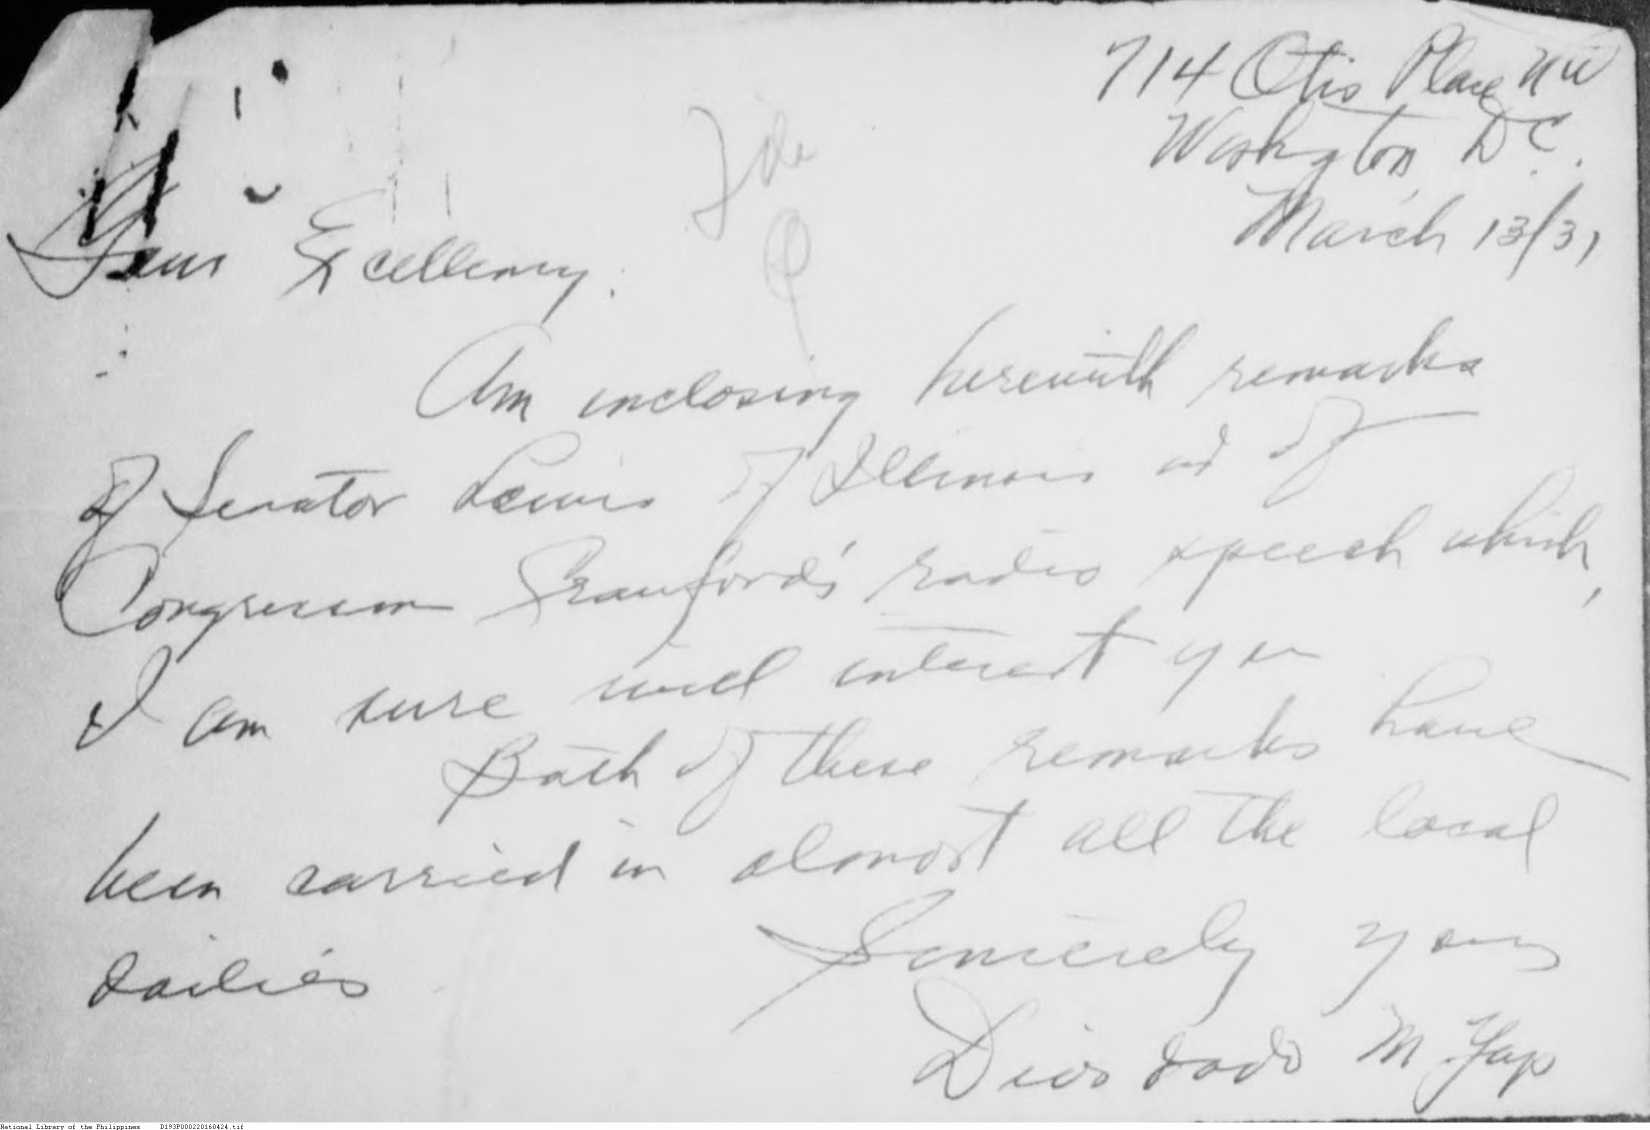 714 Otis Place NW
Washington, D C.
March 13/31
Your Excellency:
Am inclosing herewith remarks
of Senator Lewis of Illinois and of
Congressman Crawford's radio speech which,
I am sure will interest you
Both of these remarks have
been carried in almost all the local
dailies
Sincerely yours
Diosdado M. Yap
National Library of the Philippines D193P000220160424.tif